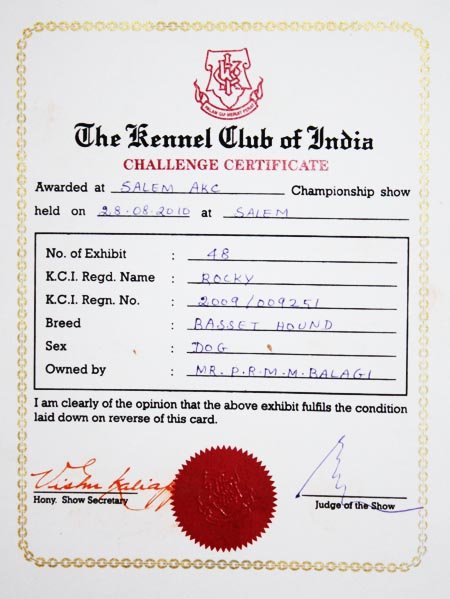 The Kennel Club of India
CHALLENGE CERTIFICATE
Awarded at SALEM AKC Championship show
held on 28.08.2010 at SALEM
No. of Exhibit : 48
K.C.I. Regd. Name : ROCKY
K.C.I. Regn. No. : 2009/009251
Breed : BASSET HOUND
Sex : DOG
Owned by : MR. P.R.M.M. BALAGI
I am clearly of the opinion that the above exhibit fulfils the condition
laid down on reverse of this card.
Vishnu
Hony. Show Secretary
Judge of the Show